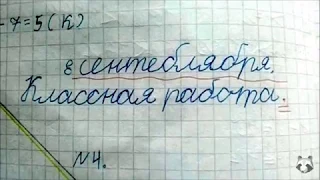 -7=5(К)
8 сентеблября.
Классная работа.
№4.